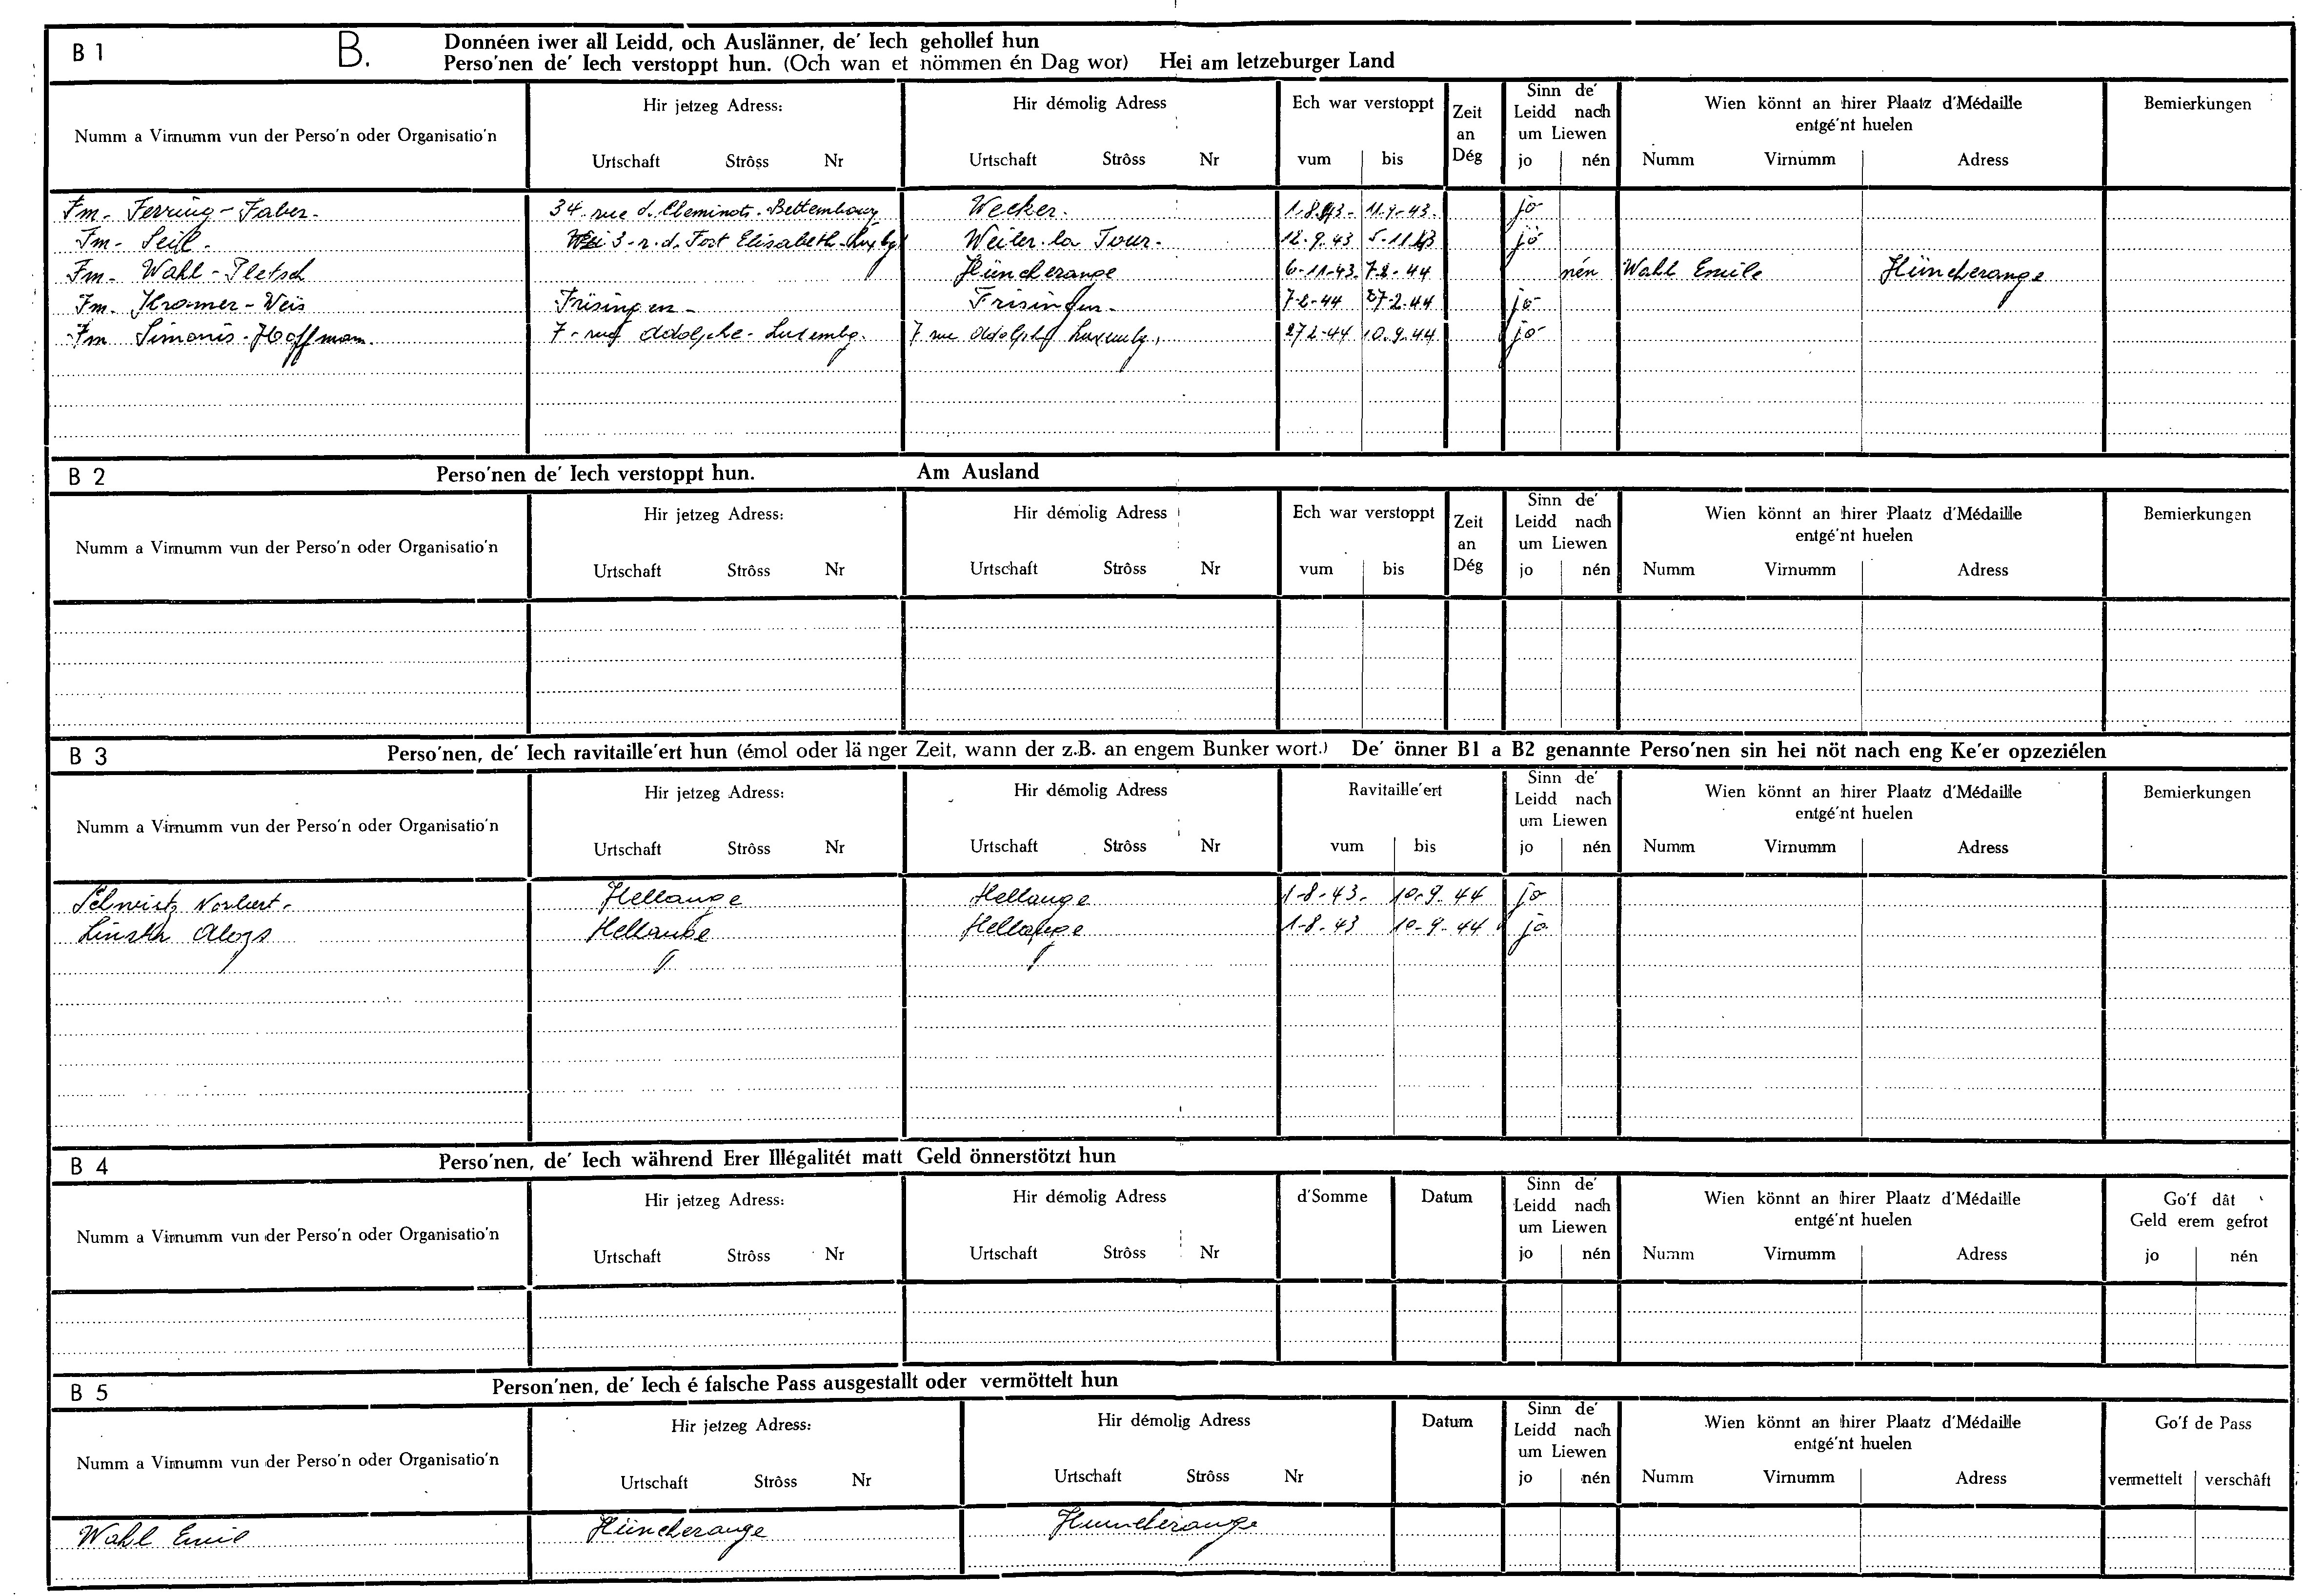 B 1 B. Donnéen iwer all Leidd, och Auslänner, de' Iech gehollef hun
Perso'nen de' Iech verstoppt hun. (Och wan et nömmen én Dag wor) Hei am letzeburger Land
Numm a Virnumm vun der Perso'n oder Organisatio'n
Hir jetzeg Adress:
Urtschaft Strôss Nr
Hir démolig Adress
Urtschaft Strôss Nr
Ech war verstoppt
vum bis
Zeit an Dég
Sinn de' Leidd nach um Liewen
jo nén
Wien könnt an hirer Plaatz d'Médaille entgé'nt huelen
Numm Virnumm Adress
Bemierkungen
Fm. Ferring - Faber. 34. rue d. Cheminots. Bettembourg Wecker. 1.8.43- 11.9-43. jo
Fm- Seil. 3-r.d. Fort Elisabeth-Luxbg Weiler-la Tour. 12.9.43 5.11.43 jo
Fm- Wahl-Pletsch Hüncherange 6-11-43. 7.2-44 nén Wahl Emile Hüncherange
Fm. Kramer-Weis Frisingen- Frisingen- 7-2-44 27-2.44 jo-
Fm Simonis-Hoffmann. 7-rue Adolphe-Luxembg. 7 rue Adolphe Luxembg. 27 2-44 10.9.44 jo-
B 2 Perso'nen de' Iech verstoppt hun. Am Ausland
Numm a Virnumm vun der Perso'n oder Organisatio'n
Hir jetzeg Adress:
Urtschaft Strôss Nr
Hir démolig Adress
Urtschaft Strôss Nr
Ech war verstoppt
vum bis
Zeit an Dég
Sinn de' Leidd nach um Liewen
jo nén
Wien könnt an hirer Plaatz d'Médaille entgé'nt huelen
Numm Virnumm Adress
Bemierkungen
B 3 Perso'nen, de' Iech ravitaille'ert hun (émol oder länger Zeit, wann der z.B. an engem Bunker wort.) De' önner B1 a B2 genannte Perso'nen sin hei nöt nach eng Ke'er opzeziélen
Numm a Virnumm vun der Perso'n oder Organisatio'n
Hir jetzeg Adress:
Urtschaft Strôss Nr
Hir démolig Adress
Urtschaft Strôss Nr
Ravitaille'ert
vum bis
Sinn de' Leidd nach um Liewen
jo nén
Wien könnt an hirer Plaatz d'Médaille entgé'nt huelen
Numm Virnumm Adress
Bemierkungen
Norbert- Hellange Hellange 1-8-43- 10-9-44 jo
Aloys Hellange Hellange 1-8-43 10-9-44 jo
B 4 Perso'nen, de' Iech während Erer Illégalitét matt Geld önnerstötzt hun
Numm a Virnumm vun der Perso'n oder Organisatio'n
Hir jetzeg Adress:
Urtschaft Strôss Nr
Hir démolig Adress
Urtschaft Strôss Nr
d'Somme Datum
Sinn de' Leidd nach um Liewen
jo nén
Wien könnt an hirer Plaatz d'Médaille entgé'nt huelen
Numm Virnumm Adress
Go'f dât Geld erem gefrot
jo nén
B 5 Person'nen, de' Iech é falsche Pass ausgestallt oder vermöttelt hun
Numm a Virnumm vun der Perso'n oder Organisatio'n
Hir jetzeg Adress:
Urtschaft Strôss Nr
Hir démolig Adress
Urtschaft Strôss Nr
Datum
Sinn de' Leidd nach um Liewen
jo nén
Wien könnt an hirer Plaatz d'Médaille entgé'nt huelen
Numm Virnumm Adress
Go'f de Pass
vermettelt verschâft
Wahl Emil Hüncherange Huncherange